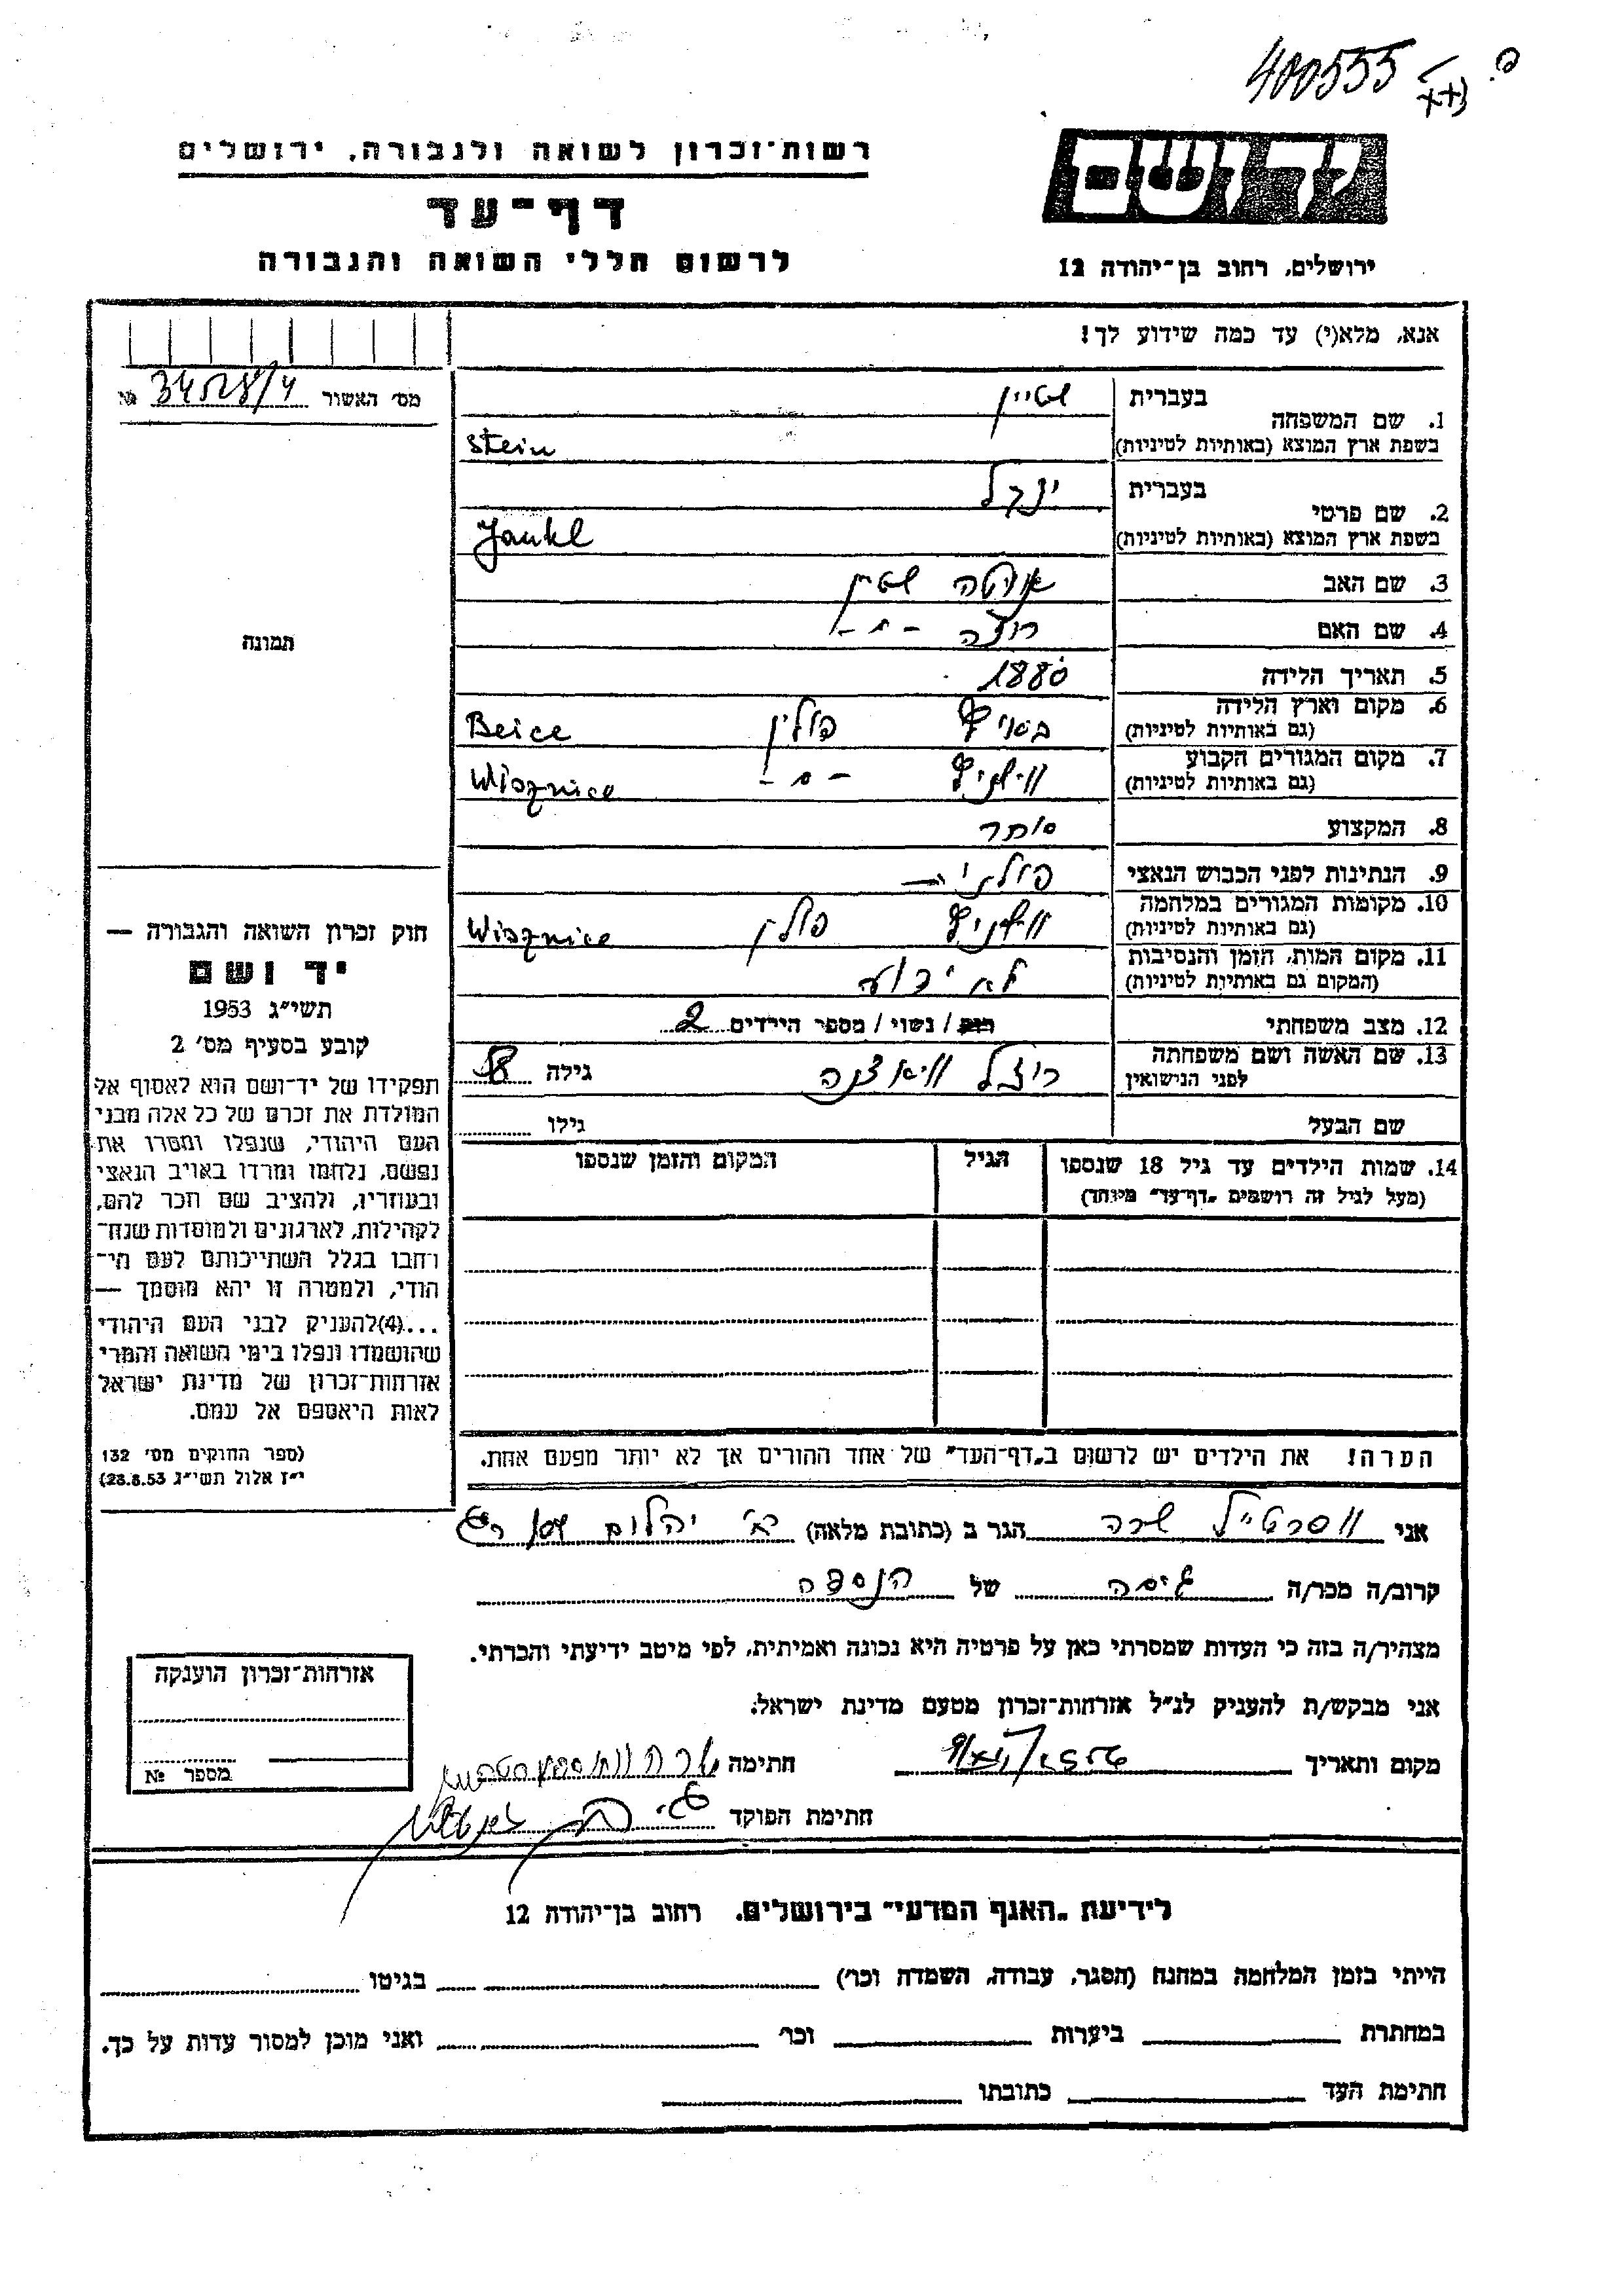 400555
רשות־זכרון לשואה ולגבורה, ירושלים
דף־עד
לרשום חללי השואה והגבורה
ידושם
ירושלים, רחוב בן־יהודה 12
אנא, מלא(י) עד כמה שידוע לך!
מס׳ האשור 34528/4 №
תמונה
1. שם המשפחה
בעברית שטיין
בשפת ארץ המוצא (באותיות לטיניות) Stein
2. שם פרטי
בעברית ינקל
בשפת ארץ המוצא (באותיות לטיניות) Jankl
3. שם האב שטיין
4. שם האם רוזה - " -
5. תאריך הלידה 1880
6. מקום וארץ הלידה
(גם באותיות לטיניות) פולין Beice
7. מקום המגורים הקבוע
(גם באותיות לטיניות) וישניץ - " - Wisznice
8. המקצוע סוחר
9. הנתינות לפני הכבוש הנאצי פולנית
10. מקומות המגורים במלחמה
(גם באותיות לטיניות) וישניץ פולין Wisznice
11. מקום המות, הזמן והנסיבות
(המקום גם באותיות לטיניות) לא ידוע
12. מצב משפחתי רוק / נשוי / מספר הילדים 2
13. שם האשה ושם משפחתה
לפני הנישואין רוזל גילה 58
שם הבעל גילו
14. שמות הילדים עד גיל 18 שנספו
(מעל לגיל זה רושמים „דף־עד״ מיוחד)
הגיל
המקום והזמן שנספו
הערה! את הילדים יש לרשום ב„דף־העד״ של אחד ההורים אך לא יותר מפעם אחת.
חוק זכרון השואה והגבורה —
יד ושם
תשי״ג 1953
קובע בסעיף מס׳ 2
תפקידו של יד־ושם הוא לאסוף אל
המולדת את זכרם של כל אלה מבני
העם היהודי, שנפלו ומסרו את
נפשם, נלחמו ומרדו באויב הנאצי
ובעוזריו, ולהציב שם וזכר להם,
לקהילות, לארגונים ולמוסדות שנח־
רבו בגלל השתייכותם לעם הי־
הודי, ולמטרה זו יהא מוסמך —
...(4)להעניק לבני העם היהודי
שהושמדו ונפלו בימי השואה והמרי
אזרחות־זכרון של מדינת ישראל
לאות היאספם אל עמם.
(ספר החוקים מס׳ 132
י״ז אלול תשי״ג 28.8.53)
אני וסרטייל שרה הגר ב (כתובת מלאה)
קרוב/ה מכר/ה גיסה של הנספה
מצהיר/ה בזה כי העדות שמסרתי כאן על פרטיה היא נכונה ואמיתית, לפי מיטב ידיעתי והכרתי.
אני מבקש/ת להעניק לנ״ל אזרחות־זכרון מטעם מדינת ישראל.
מקום ותאריך חתימה שרה
חתימת הפוקד
אזרחות־זכרון הוענקה
מספר №
לידיעת „האגף המדעי״ בירושלים, רחוב בן־יהודה 12
הייתי בזמן המלחמה במחנה (הסגר, עבודה, השמדה וכו׳) בגיטו
במחתרת ביערות וכו׳ ואני מוכן למסור עדות על כך.
חתימת העד כתובתו